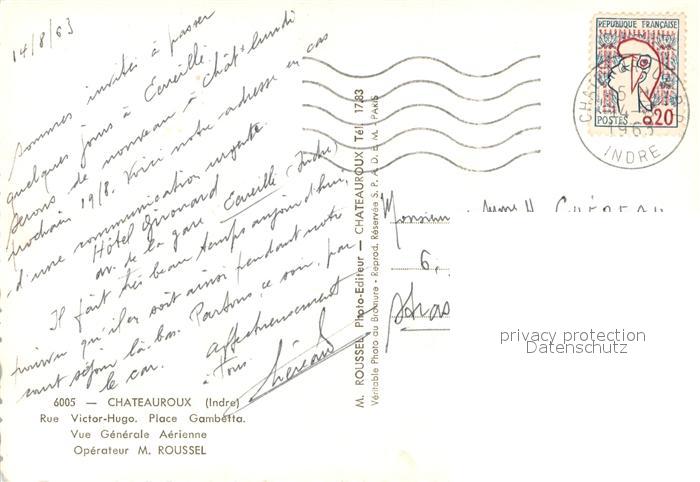 14/8/63
sommes invités à passer
quelques jours à Ecueillé.
Serons de nouveau à Chât+ lundi
prochain 19/8. Voici notre adresse en cas
d'une communication urgente
Hôtel Girouard
av. de la gare Ecueillé (Indre)
Il fait très beau temps aujourd'hui,
qu'il en soit ainsi pendant notre
court séjour là-bas. Partons, ce soir, par
le car. Affectueusement
à Tous
6005 — CHATEAUROUX (Indre)
Rue Victor-Hugo. Place Gambetta.
Vue Générale Aérienne
Opérateur M. ROUSSEL
M. ROUSSEL Photo-Editeur — CHATEAUROUX Tél 17.83
Véritable Photo au Bromure - Reprod. Réservée S. P. A. D. E. M. - PARIS
REPUBLIQUE FRANÇAISE
POSTES 0.20
1963
INDRE
Monsieur
6,
privacy protection
Datenschutz